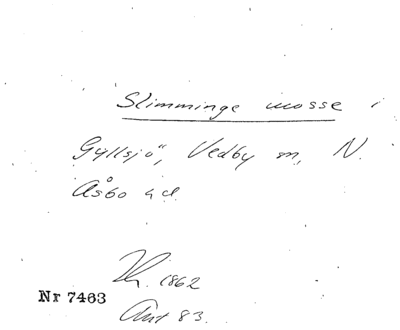 Slimminge mosse i
Gyllsjö, Vedby sn, N.
Åsbo hd
1862
Nr 7463
Ant 83.